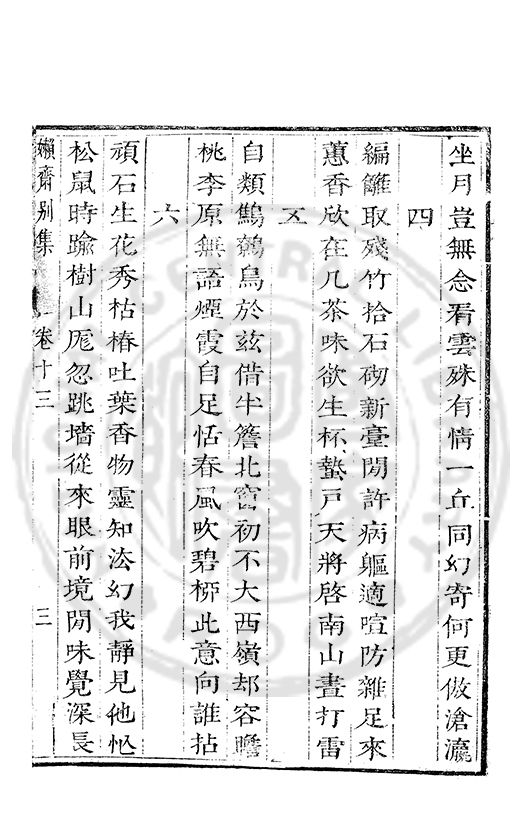 坐月豈無念看雲殊有情一丘同幻寄何更倣滄瀛
四
編籬取殘竹拾石砌新臺閒許病軀適喧防雜足來
蕙香欣在几茶味欲生杯蟄戸天將啓南山晝打雷
五
自類鷦鷯鳥於茲借半簷北窻初不大西嶺却容瞻
桃李原無語煙霞自足恬春風吹碧栁此意向誰拈
六
頑石生花秀枯椿吐葉香物靈知法幻我靜見他忙
松鼠時踰樹山厖忽跳墻從來眼前境閒味覺深長
嬾齋别集 卷十三 三